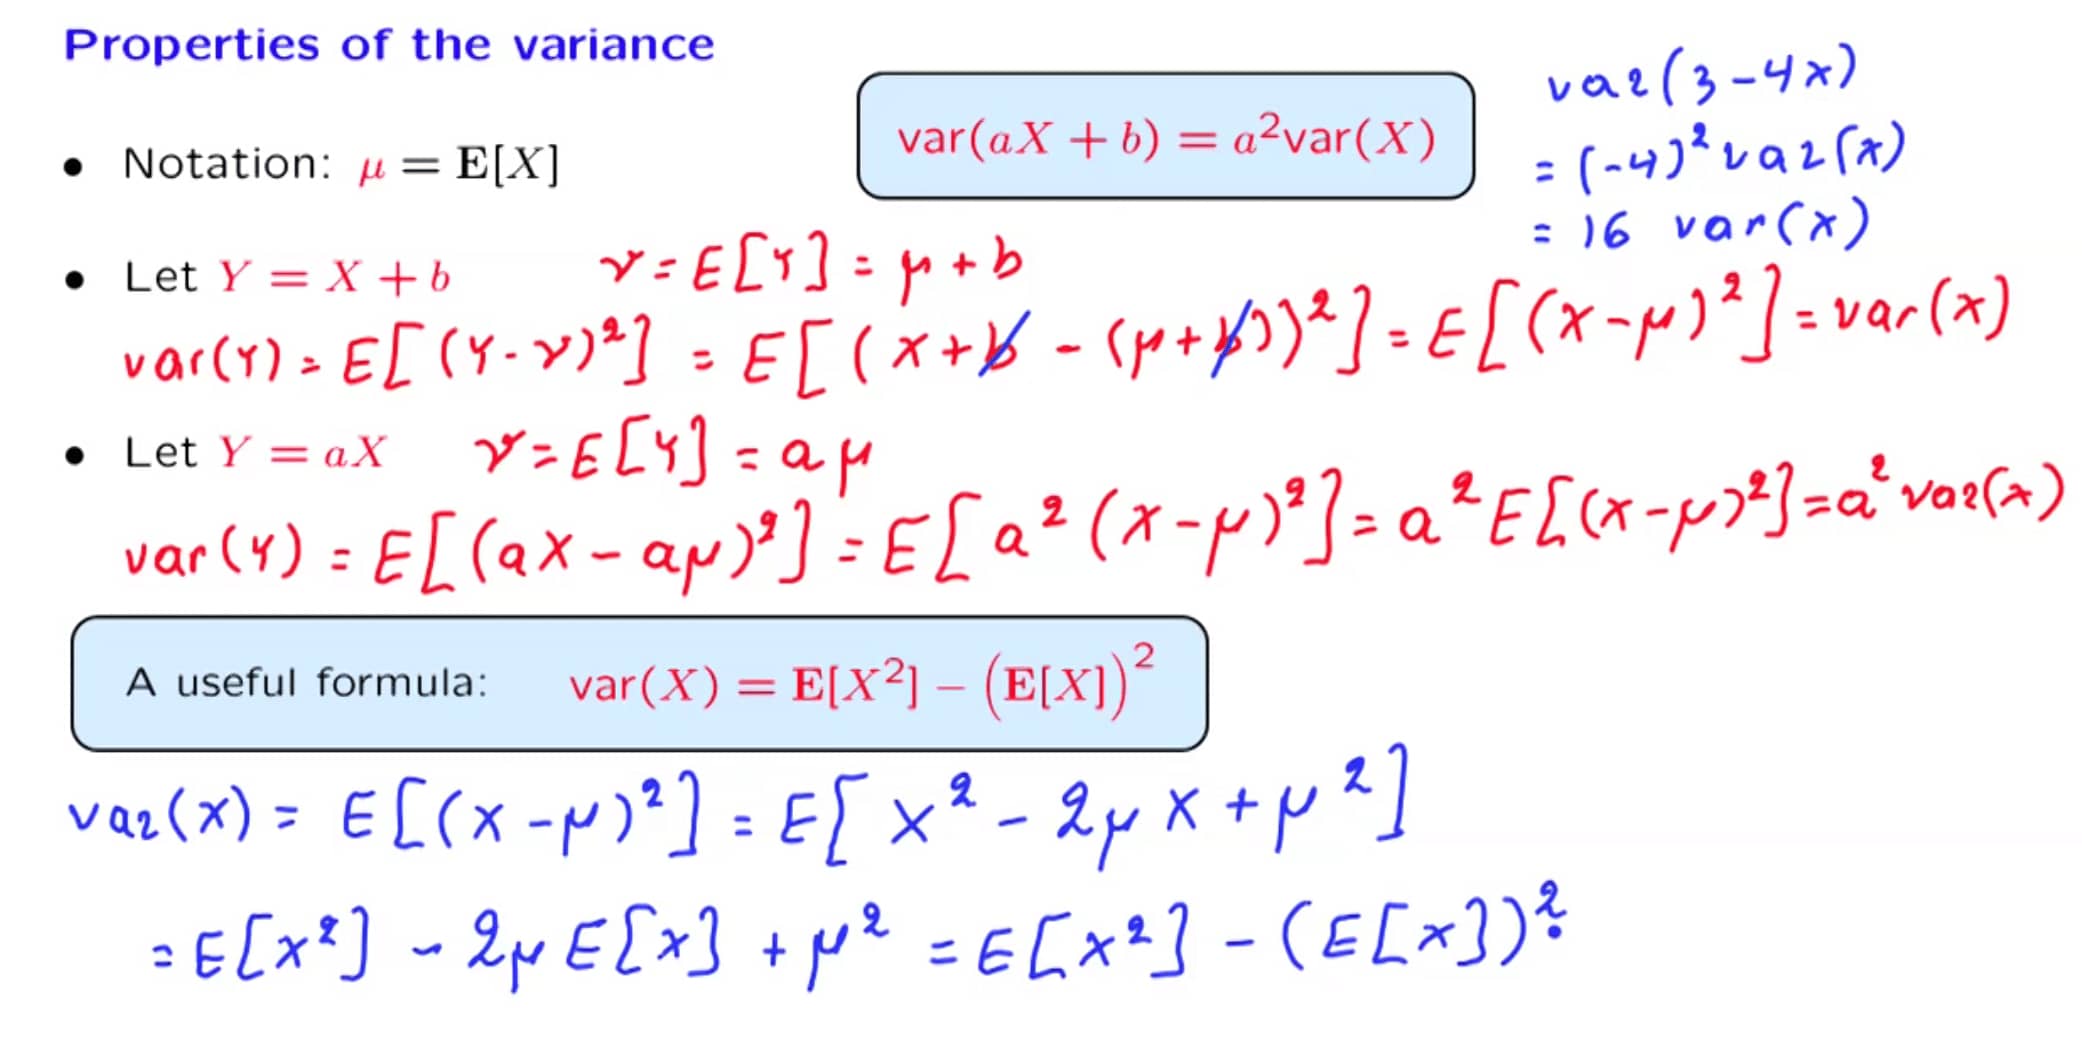 Properties of the variance
var(aX + b) = a²var(X)
var(3-4x)
= (-4)² var(x)
= 16 var(x)
• Notation: μ = E[X]
• Let Y = X + b γ = E[Y] = μ + b
var(Y) = E[(Y-γ)²] = E[(x+b - (μ+b))²] = E[(x-μ)²] = var(x)
• Let Y = aX γ = E[Y] = aμ
var(Y) = E[(ax - aμ)²] = E[a²(x-μ)²] = a² E[(x-μ)²] = a² var(x)
A useful formula: var(X) = E[X²] − (E[X])²
var(x) = E[(x-μ)²] = E[x² - 2μx + μ²]
= E[x²] - 2μE[x] + μ² = E[x²] - (E[x])².